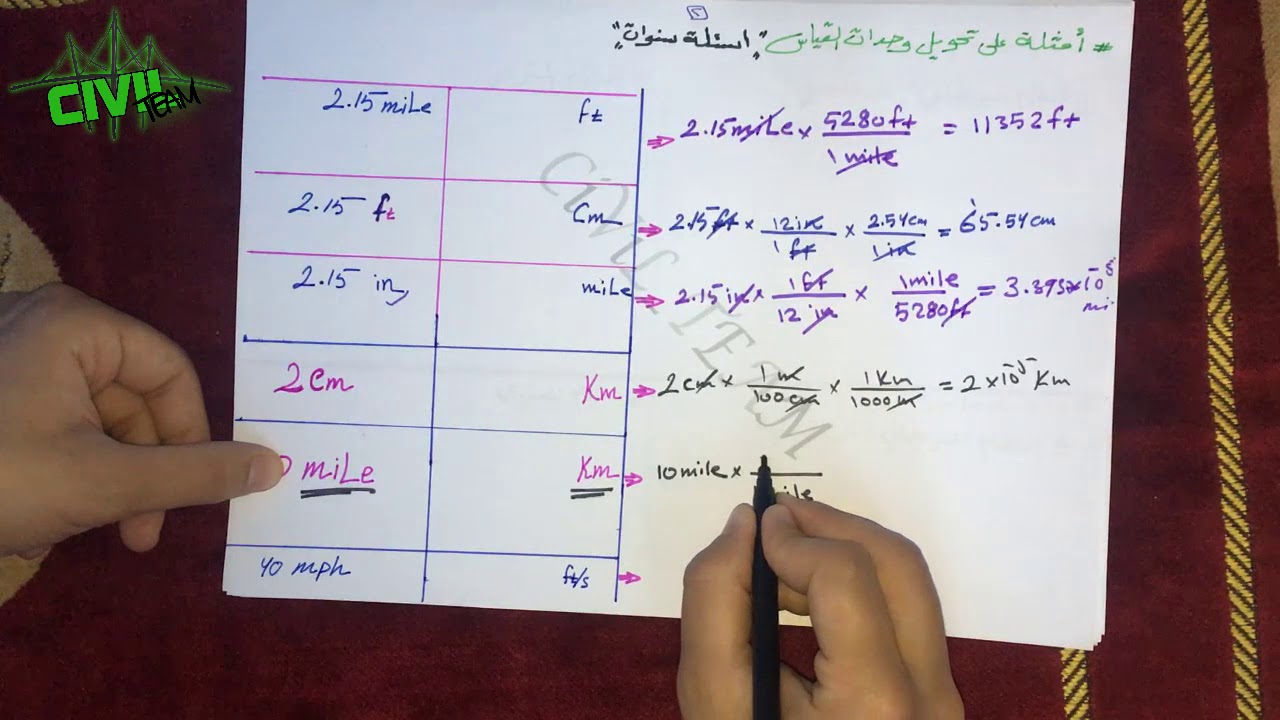 CIVIL TEAM
5
# أمثلة على تحويل وحدات القياس "اسئلة سنوات"
2.15 mile ft → 2.15 mile × 5280 ft / 1 mile = 11352 ft
2.15 ft Cm → 2.15 ft × 12 in / 1 ft × 2.54 cm / 1 in = 65.54 cm
2.15 in mile → 2.15 in × 1 ft / 12 in × 1 mile / 5280 ft = 10⁻⁵ mi
2 Cm Km → 2 cm × 1 m / 100 cm × 1 Km / 1000 m = 2 × 10⁻⁵ Km
mile Km → 10 mile ×
40 mph ft/s →
CIVIL TEAM